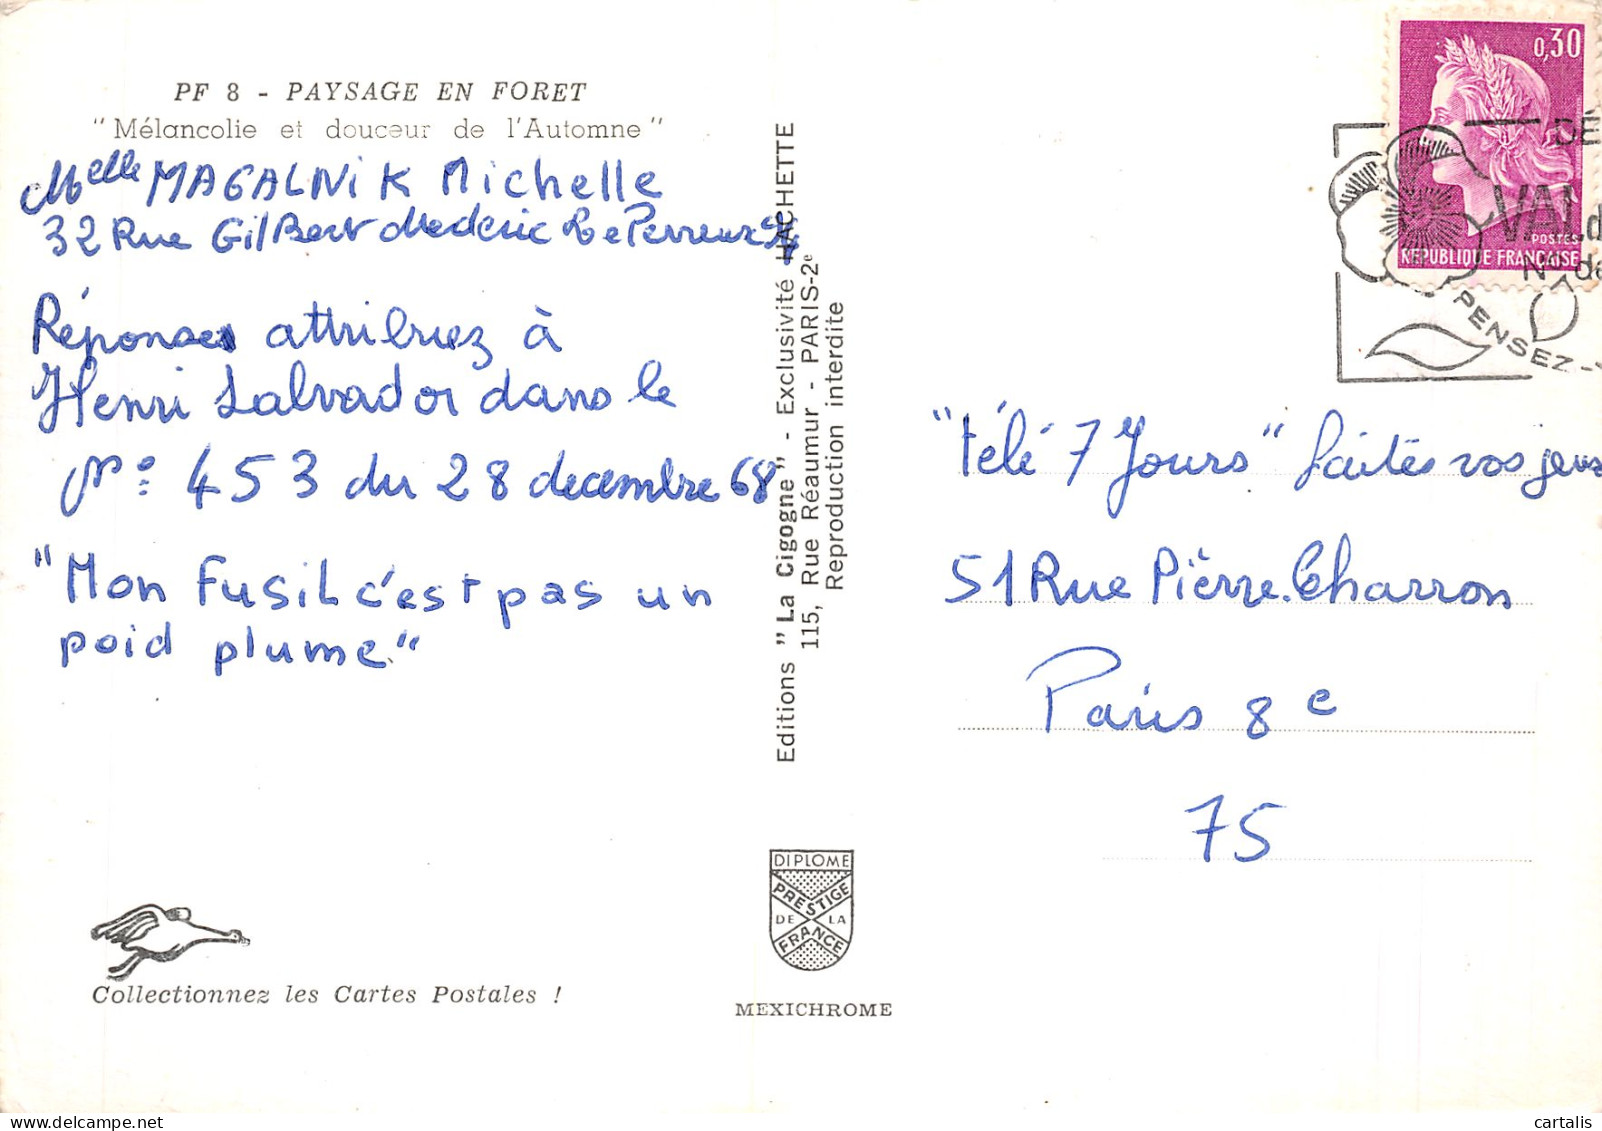 PF 8 - PAYSAGE EN FORET
"Mélancolie et douceur de l'Automne"
Melle MAGALNIK Michelle
32 Rue GilBert Mederic Le Perreux
Réponses attribuez à
Henri Salvador dans le
N° 453 du 28 decembre 68
"Mon Fusil c'est pas un
poid plume."
Collectionnez les Cartes Postales !
Editions "La Cigogne" - Exclusivité HACHETTE
115, Rue Réaumur - PARIS-2e
Reproduction interdite
DIPLOME
PRESTIGE
DE LA
FRANCE
MEXICHROME
0,30
POSTES
REPUBLIQUE FRANÇAISE
DÉ
VAL d
N° de
PENSEZ-Y
"télé 7 Jours" faites vos jeux
51 Rue Pierre.Charron
Paris 8e
75
cartalis